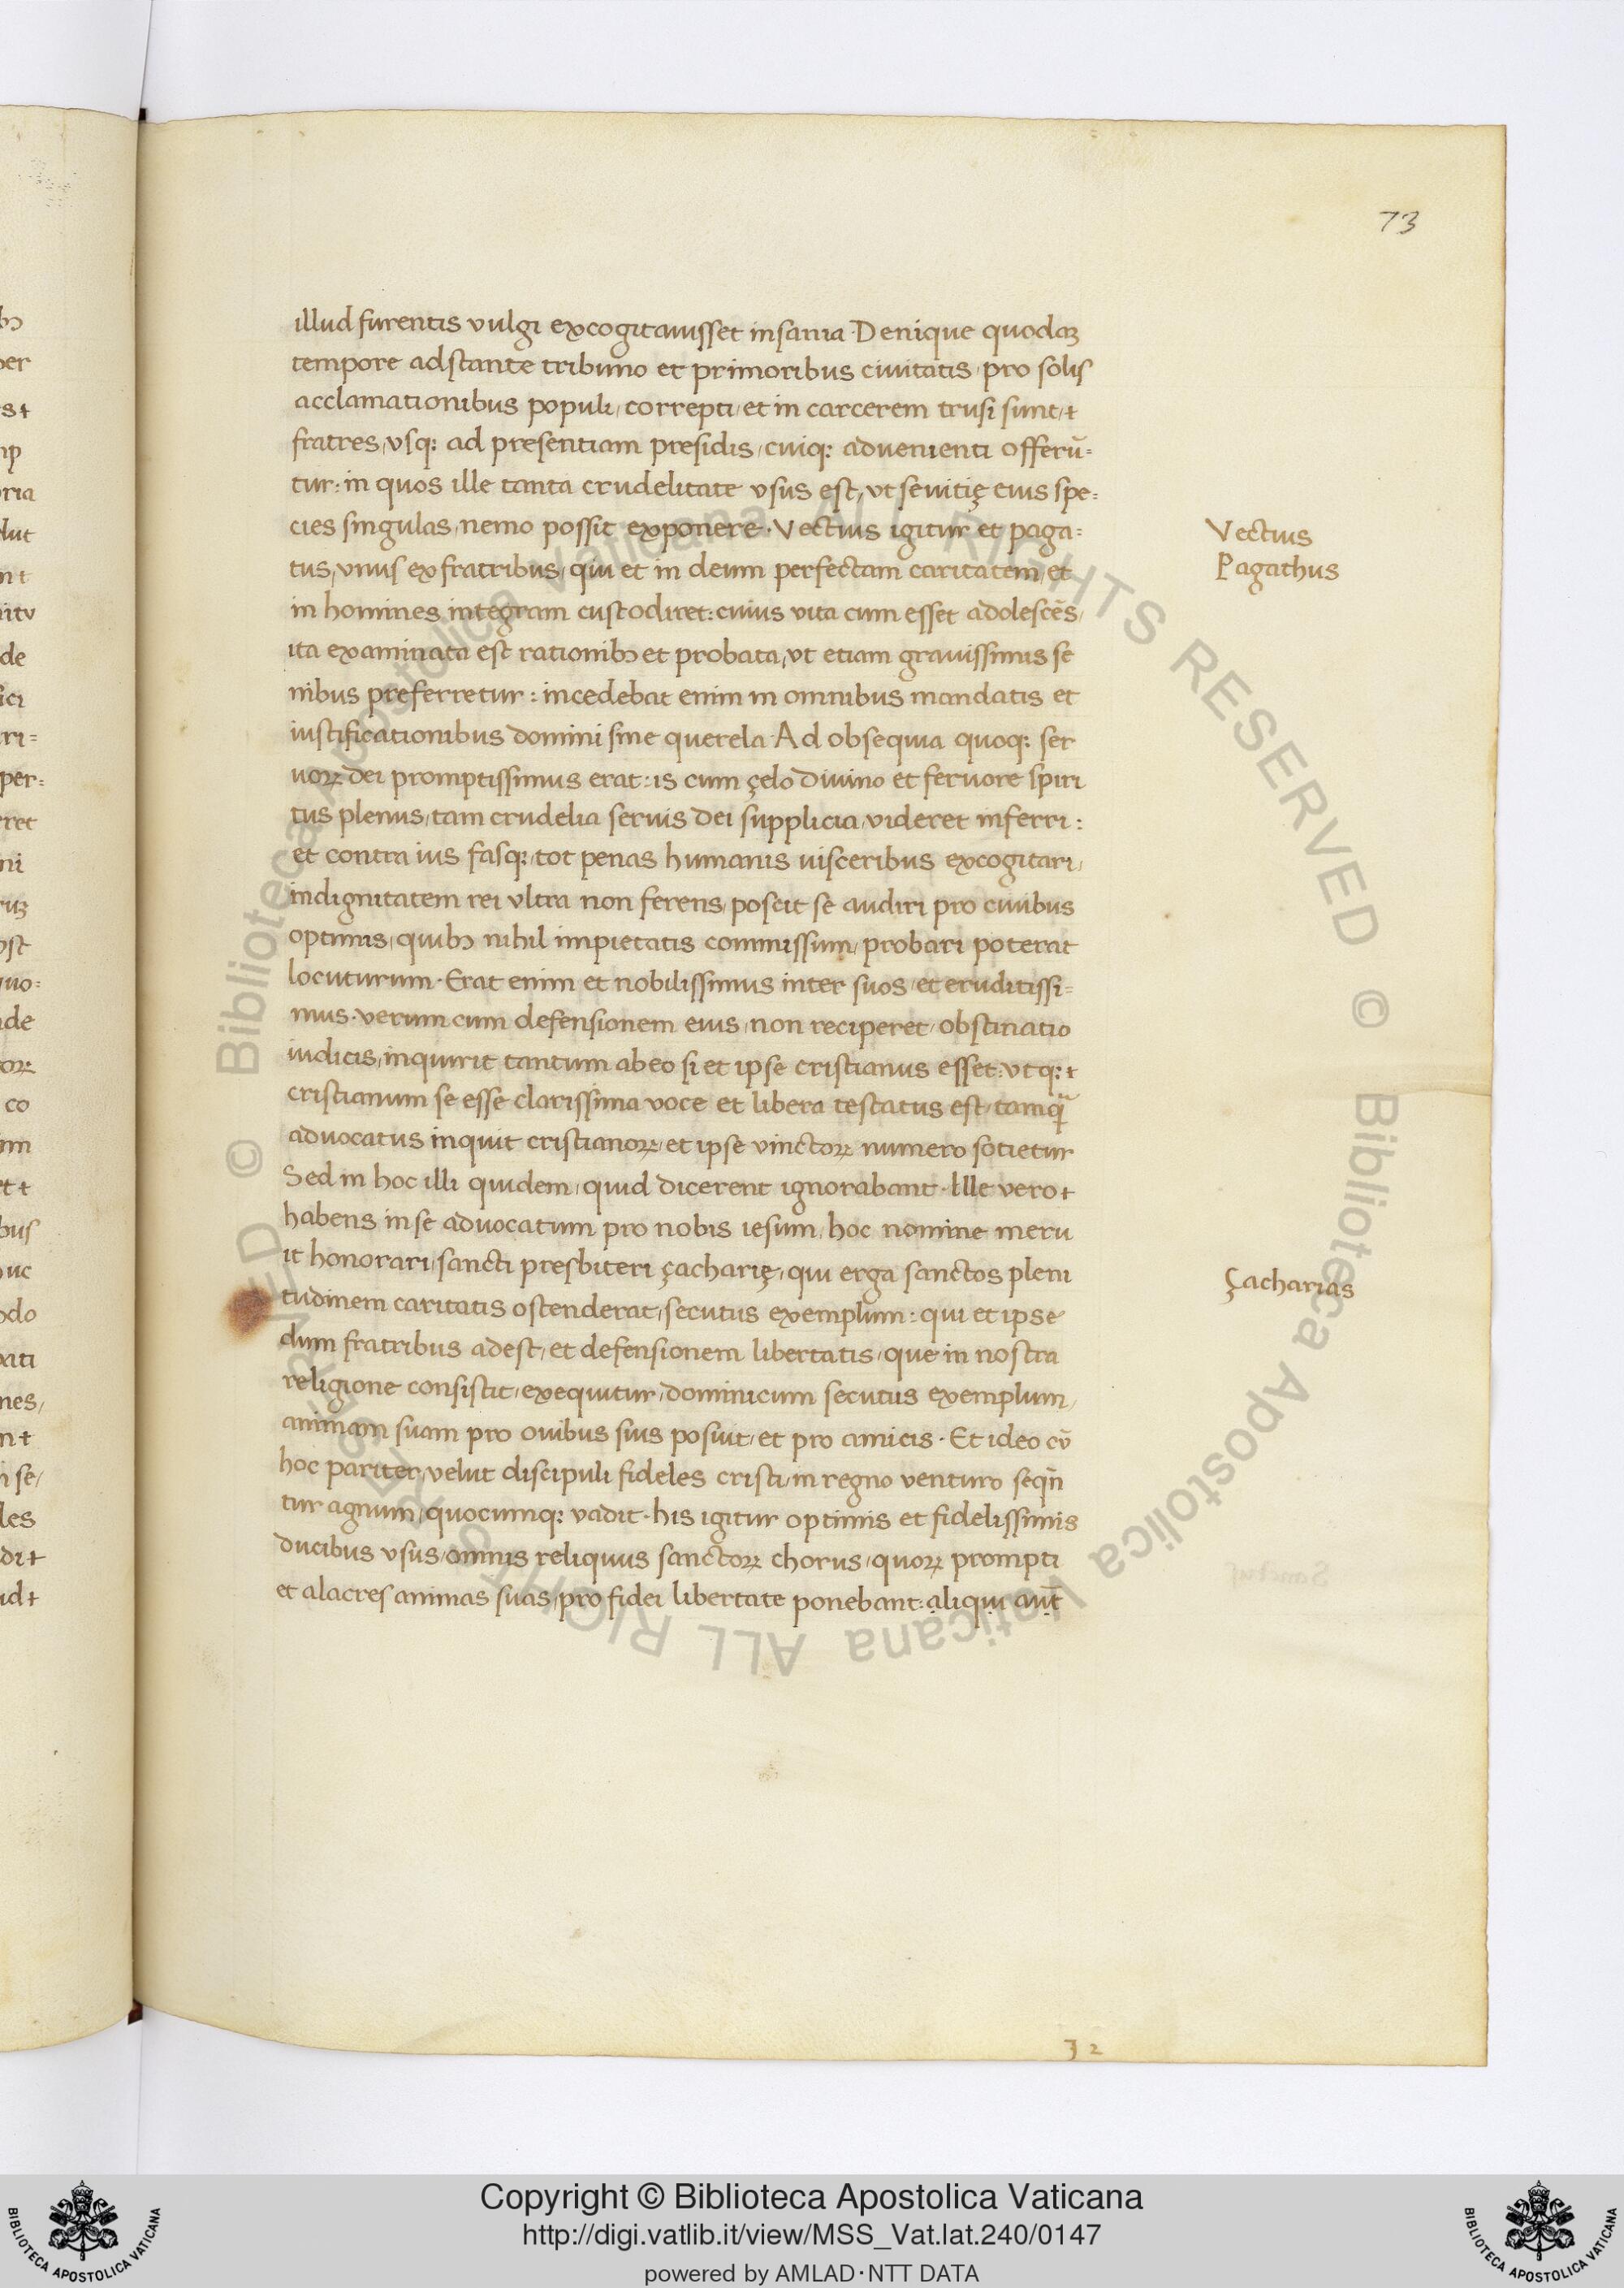 73
illud furentis vulgi excogitauisset insania · Denique quodaꝫ
tempore adstante tribuno et primoribus ciuitatis, pro solis
acclamationibus populi, correpti, et in carcerem trusi sunt, +
fratres, vsq: ad presentiam presidis, cuiq: aduenienti offerū-
tur: in quos ille tanta crudelitate vsus est, vt seuitię eius spe-
cies singulas, nemo possit exponere · Vectius igitur et paga-
tus, vnus ex fratribus, qui et in deum perfectam caritatem, et
in homines integram custodiret: cuius vita cum esset adolescēs,
ita examinata est rationibꝫ et probata, vt etiam grauissimis se
nibus preferretur: incedebat enim in omnibus mandatis et
iustificationibus domini sine querela · Ad obsequia quoq: ser
uoꝝ dei promptissimus erat: is cum çelo diuino et feruore spiri
tus plenus, tam crudelia seruis dei supplicia, videret inferri:
et contra ius fasq:, tot penas humanis uisceribus excogitari,
indignitatem rei vltra non ferens, poscit se audiri pro ciuibus
optimis, quibꝫ nihil impietatis commissum, probari poterat
locuturum · Erat enim et nobilissimus inter suos, et eruditissi-
mus · verum cum defensionem eius, non reciperet, obstinatio
iudicis, inquirit tantum ab eo si et ipse cristianus esset: vtq: +
cristianum se esse clarissima voce et libera testatus est, tamq̄
aduocatus inquit cristianoꝝ, et ipse vinctoꝝ numero sotietur
Sed in hoc illi quidem, quid dicerent ignorabant · Ille vero +
habens in se aduocatum pro nobis iesum, hoc nomine meru
it honorari, sancti presbiteri çacharię, qui erga sanctos pleni
tudinem caritatis ostenderat, secutus exemplum: qui et ipse
dum fratribus adest, et defensionem libertatis, que in nostra
religione consistit, exequitur, dominicum secutus exemplum,
animam suam pro ouibus suis posuit, et pro amicis · Et ideo cū
hoc pariter, velut discipuli fideles cristi, in regno venturo seqn̄
tur agnum, quocumq: vadit · his igitur optimis et fidelissimis
ducibus vsus, omnis reliquus sanctoꝝ chorus, quoꝝ prompti
et alacres animas suas, pro fidei libertate ponebant: aliqui aut̄
Vectius
Pagathus
Çacharias
J 2
© Biblioteca Apostolica Vaticana ALL RIGHTS RESERVED
© Biblioteca Apostolica Vaticana ALL RIGHTS RESERVED
Copyright © Biblioteca Apostolica Vaticana
http://digi.vatlib.it/view/MSS_Vat.lat.240/0147
powered by AMLAD·NTT DATA
BIBLIOTECA APOSTOLICA VATICANA
BIBLIOTECA APOSTOLICA VATICANA